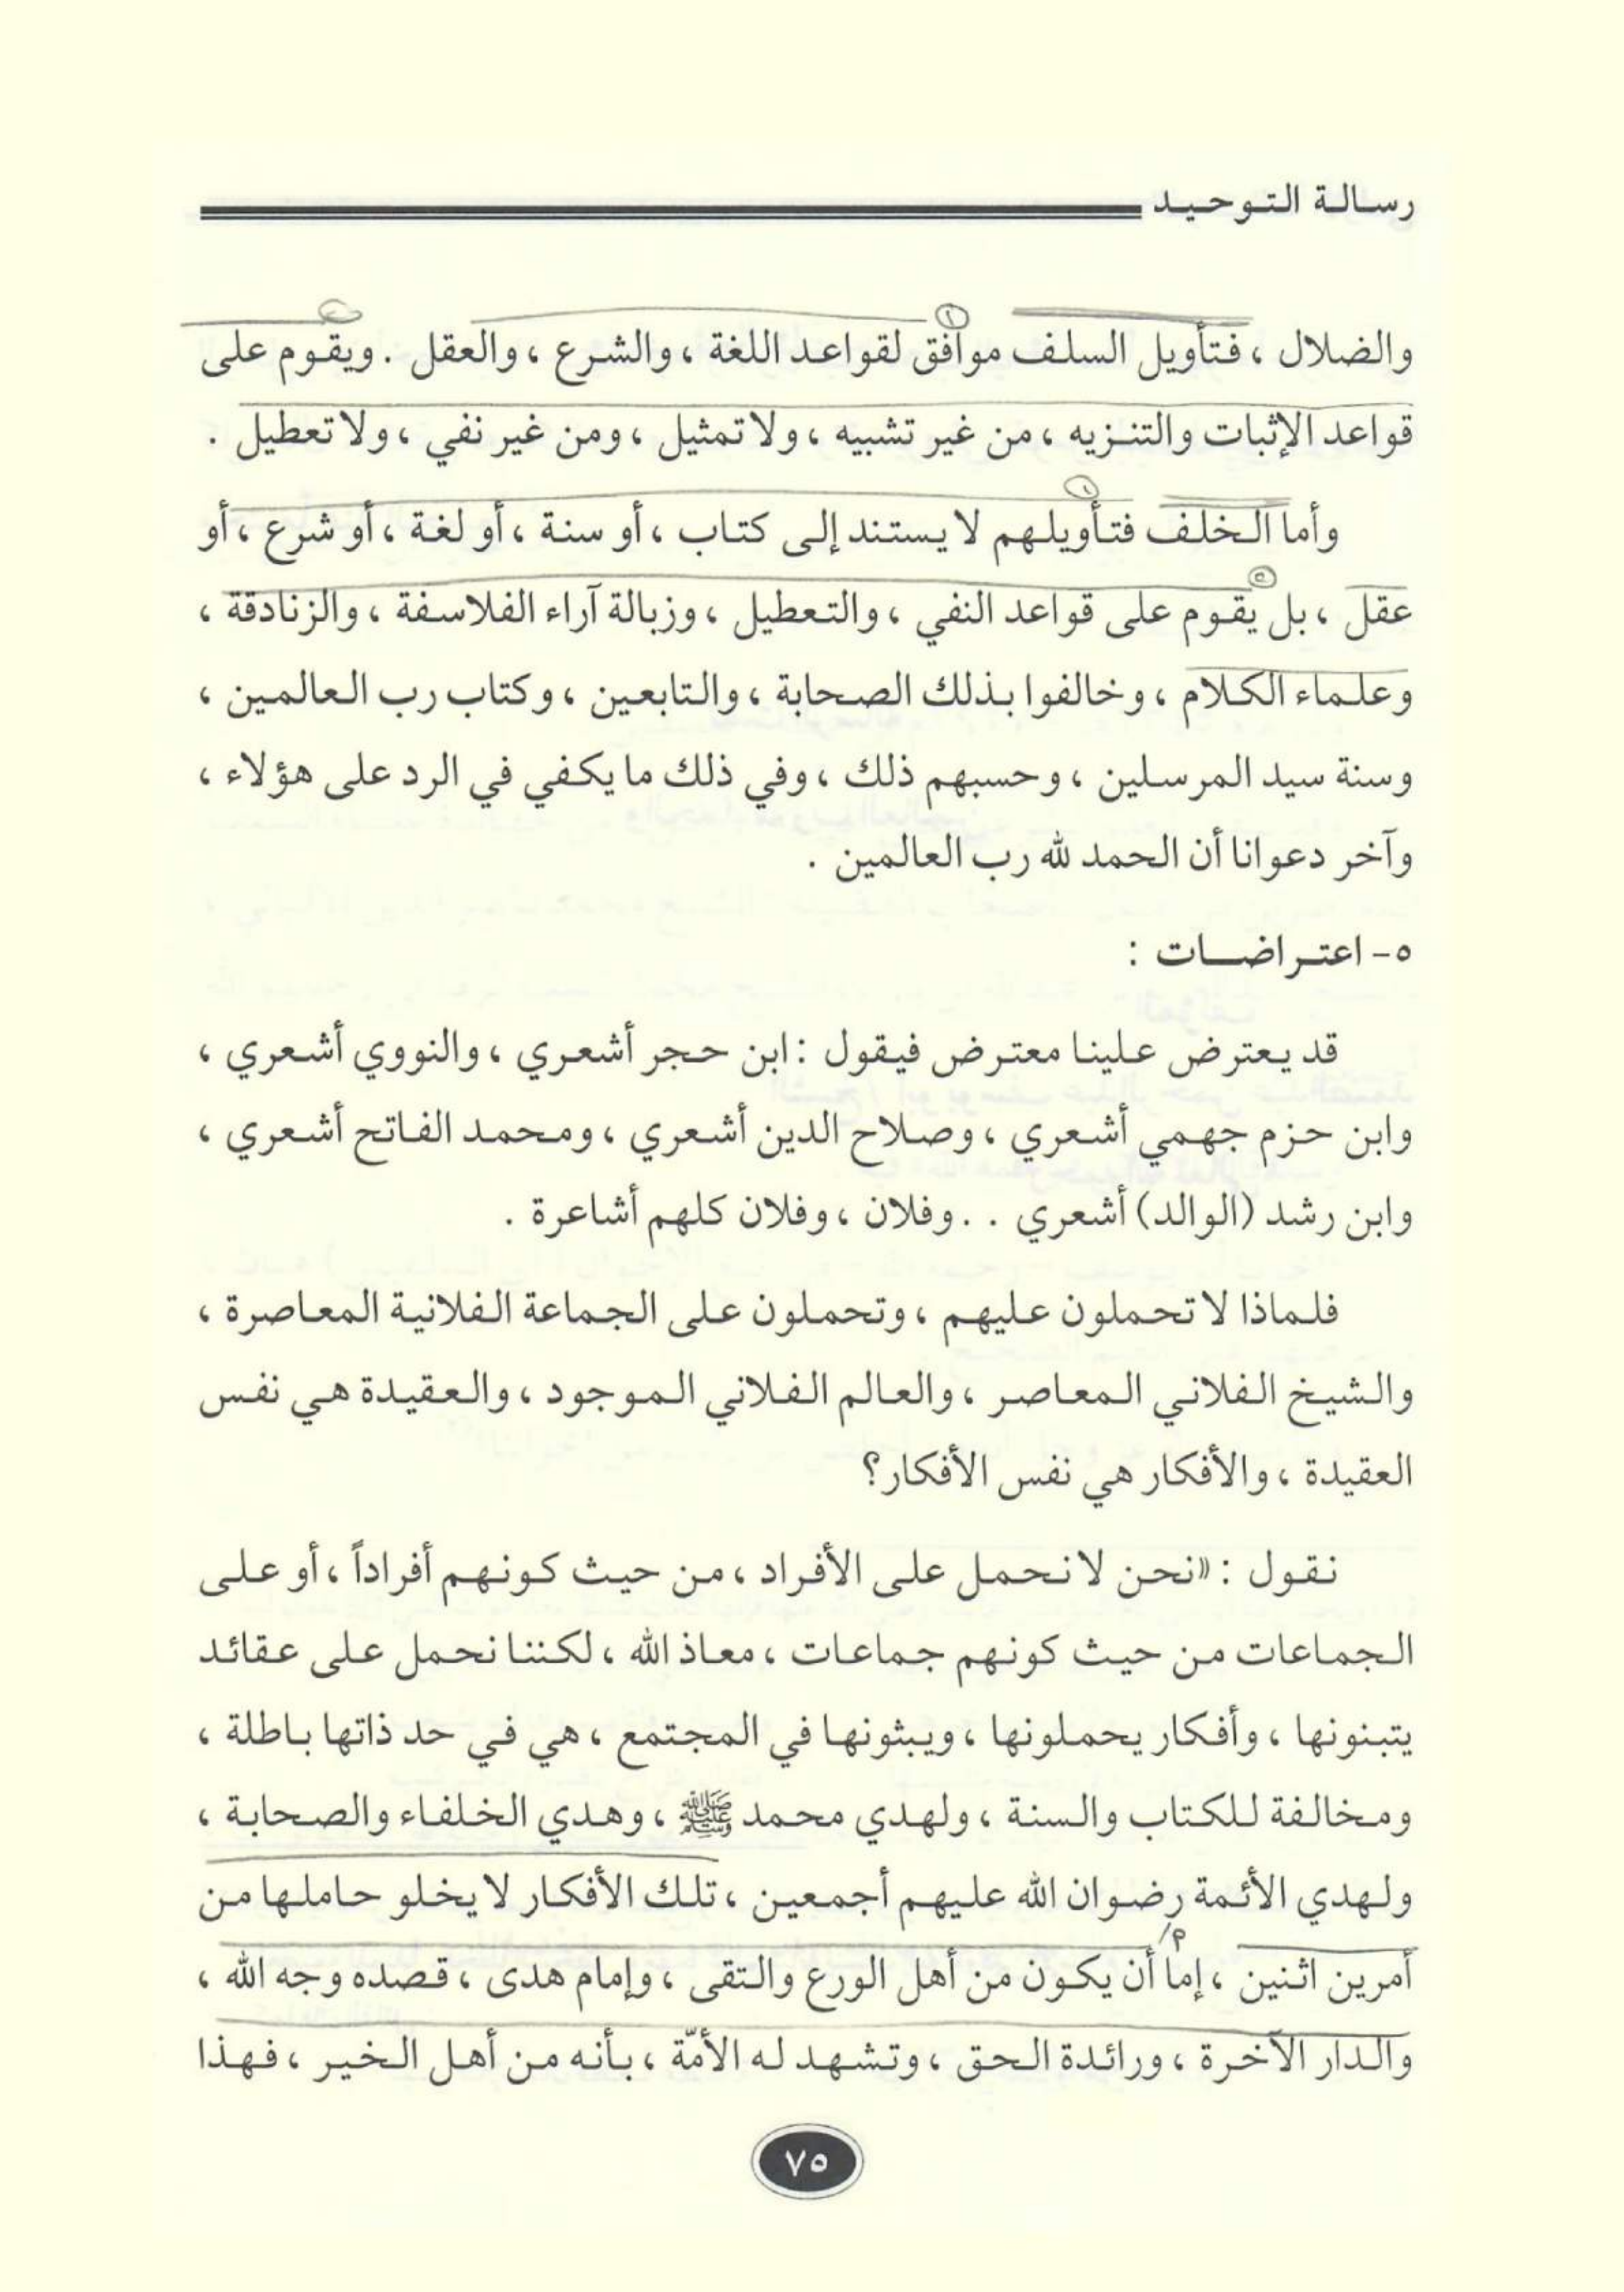 رسالة التوحيد
والضلال ، فتأويل السلف موافق لقواعد اللغة ، والشرع ، والعقل . ويقوم على
قواعد الإثبات والتنزيه ، من غير تشبيه ، ولا تمثيل ، ومن غير نفي ، ولا تعطيل .
وأما الخلف فتأويلهم لا يستند إلى كتاب ، أو سنة ، أو لغة ، أو شرع ، أو
عقل ، بل يقوم على قواعد النفي ، والتعطيل ، وزبالة آراء الفلاسفة ، والزنادقة ،
وعلماء الكلام ، وخالفوا بذلك الصحابة ، والتابعين ، وكتاب رب العالمين ،
وسنة سيد المرسلين ، وحسبهم ذلك ، وفي ذلك ما يكفي في الرد على هؤلاء ،
وآخر دعوانا أن الحمد لله رب العالمين .
٥- اعتراضات :
قد يعترض علينا معترض فيقول : ابن حجر أشعري ، والنووي أشعري ،
وابن حزم جهمي أشعري ، وصلاح الدين أشعري ، ومحمد الفاتح أشعري ،
وابن رشد (الوالد) أشعري . . وفلان ، وفلان كلهم أشاعرة .
فلماذا لا تحملون عليهم ، وتحملون على الجماعة الفلانية المعاصرة ،
والشيخ الفلاني المعاصر ، والعالم الفلاني الموجود ، والعقيدة هي نفس
العقيدة ، والأفكار هي نفس الأفكار؟
نقول : «نحن لا نحمل على الأفراد ، من حيث كونهم أفراداً ، أو على
الجماعات من حيث كونهم جماعات ، معاذ الله ، لكننا نحمل على عقائد
يتبنونها ، وأفكار يحملونها ، ويبثونها في المجتمع ، هي في حد ذاتها باطلة ،
ومخالفة للكتاب والسنة ، ولهدي محمد ﷺ ، وهدي الخلفاء والصحابة ،
ولهدي الأئمة رضوان الله عليهم أجمعين ، تلك الأفكار لا يخلو حاملها من
أمرين اثنين ، إما أن يكون من أهل الورع والتقى ، وإمام هدى ، قصده وجه الله ،
والدار الآخرة ، ورائدة الحق ، وتشهد له الأمّة ، بأنه من أهل الخير ، فهذا
٧٥